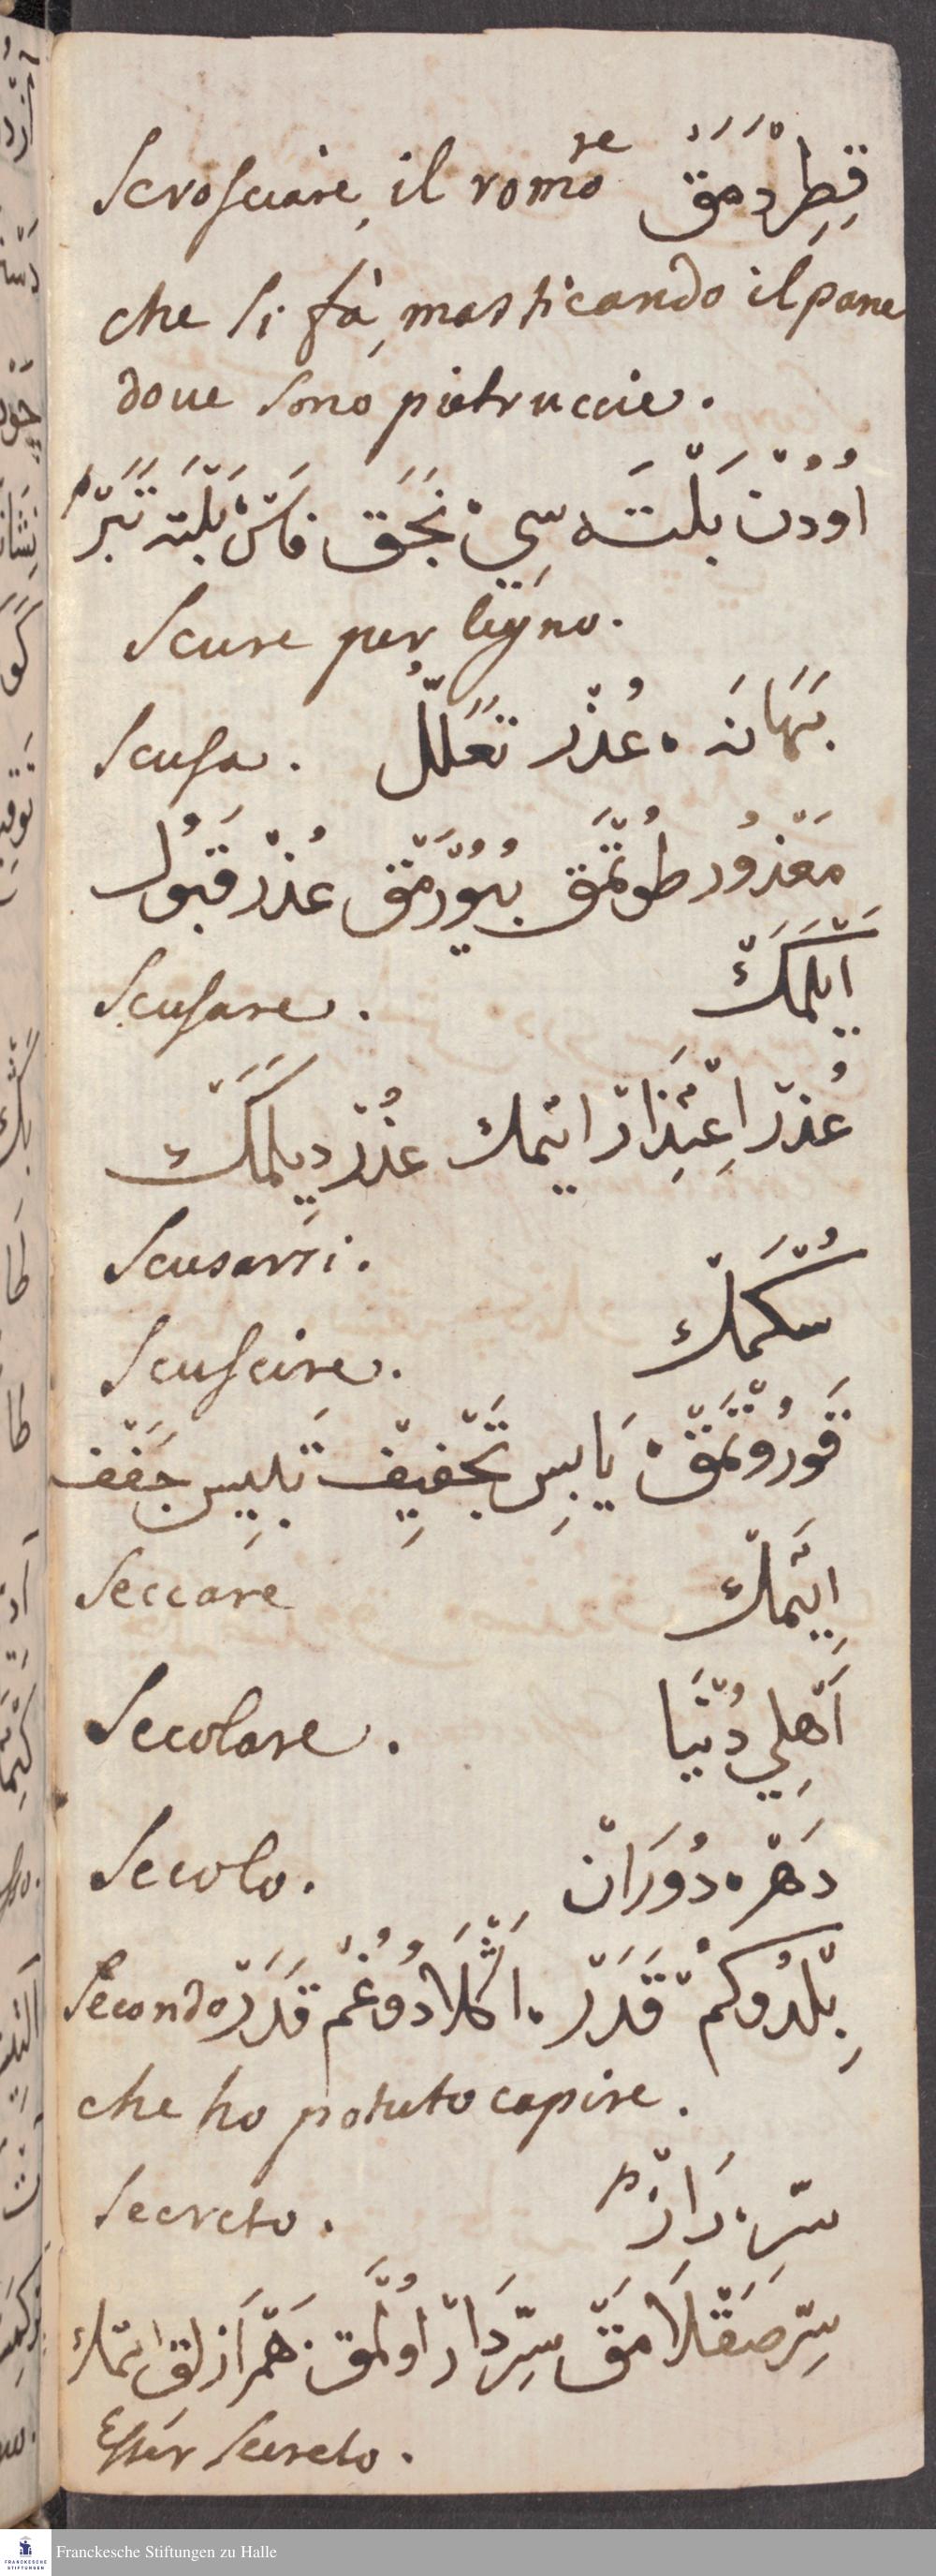 Scrosciare, il romore قِطِرْدَمَقْ
che si fà, masticando il pane
doue sono pietruccie.
اُودُنْ بَلْتَه سِي نَجَق فَاسْ بَلْتَه تَبَرْ
Scure per legno.
Scusa. بَهَانَه عُذْر تَعَلُّلْ
مَعْذُور طُوتْمَق بُيُورْمَقْ عُذْر قَبُول
Scusare. اَيْلَمَكْ
عُذْر اِعْتِذَار اتمك عُذْر دِيلَمَكْ
Scusarsi.
Scuscire. سُكْمَكْ
قُورُوتْمَقْ يَابِس تَجْفِيفْ تَيْبِيس جَفَف
Seccare اِيتْمَكْ
Secolare. اَهْلِي دُنْيَا
Secolo. دَهْر دُورَانْ
Secondo بِلْدُوكُمْ قَدَرْ اكْلَادُوغُمْ قَدَرْ
che ho potuto capire.
Secreto. سِرّ رَازْ
سِرّ صَقْلَامَقْ سِرّدَارْ اُولْمَق هَمْرَازلق اتمك
Esser secreto.
Franckesche Stiftungen zu Halle